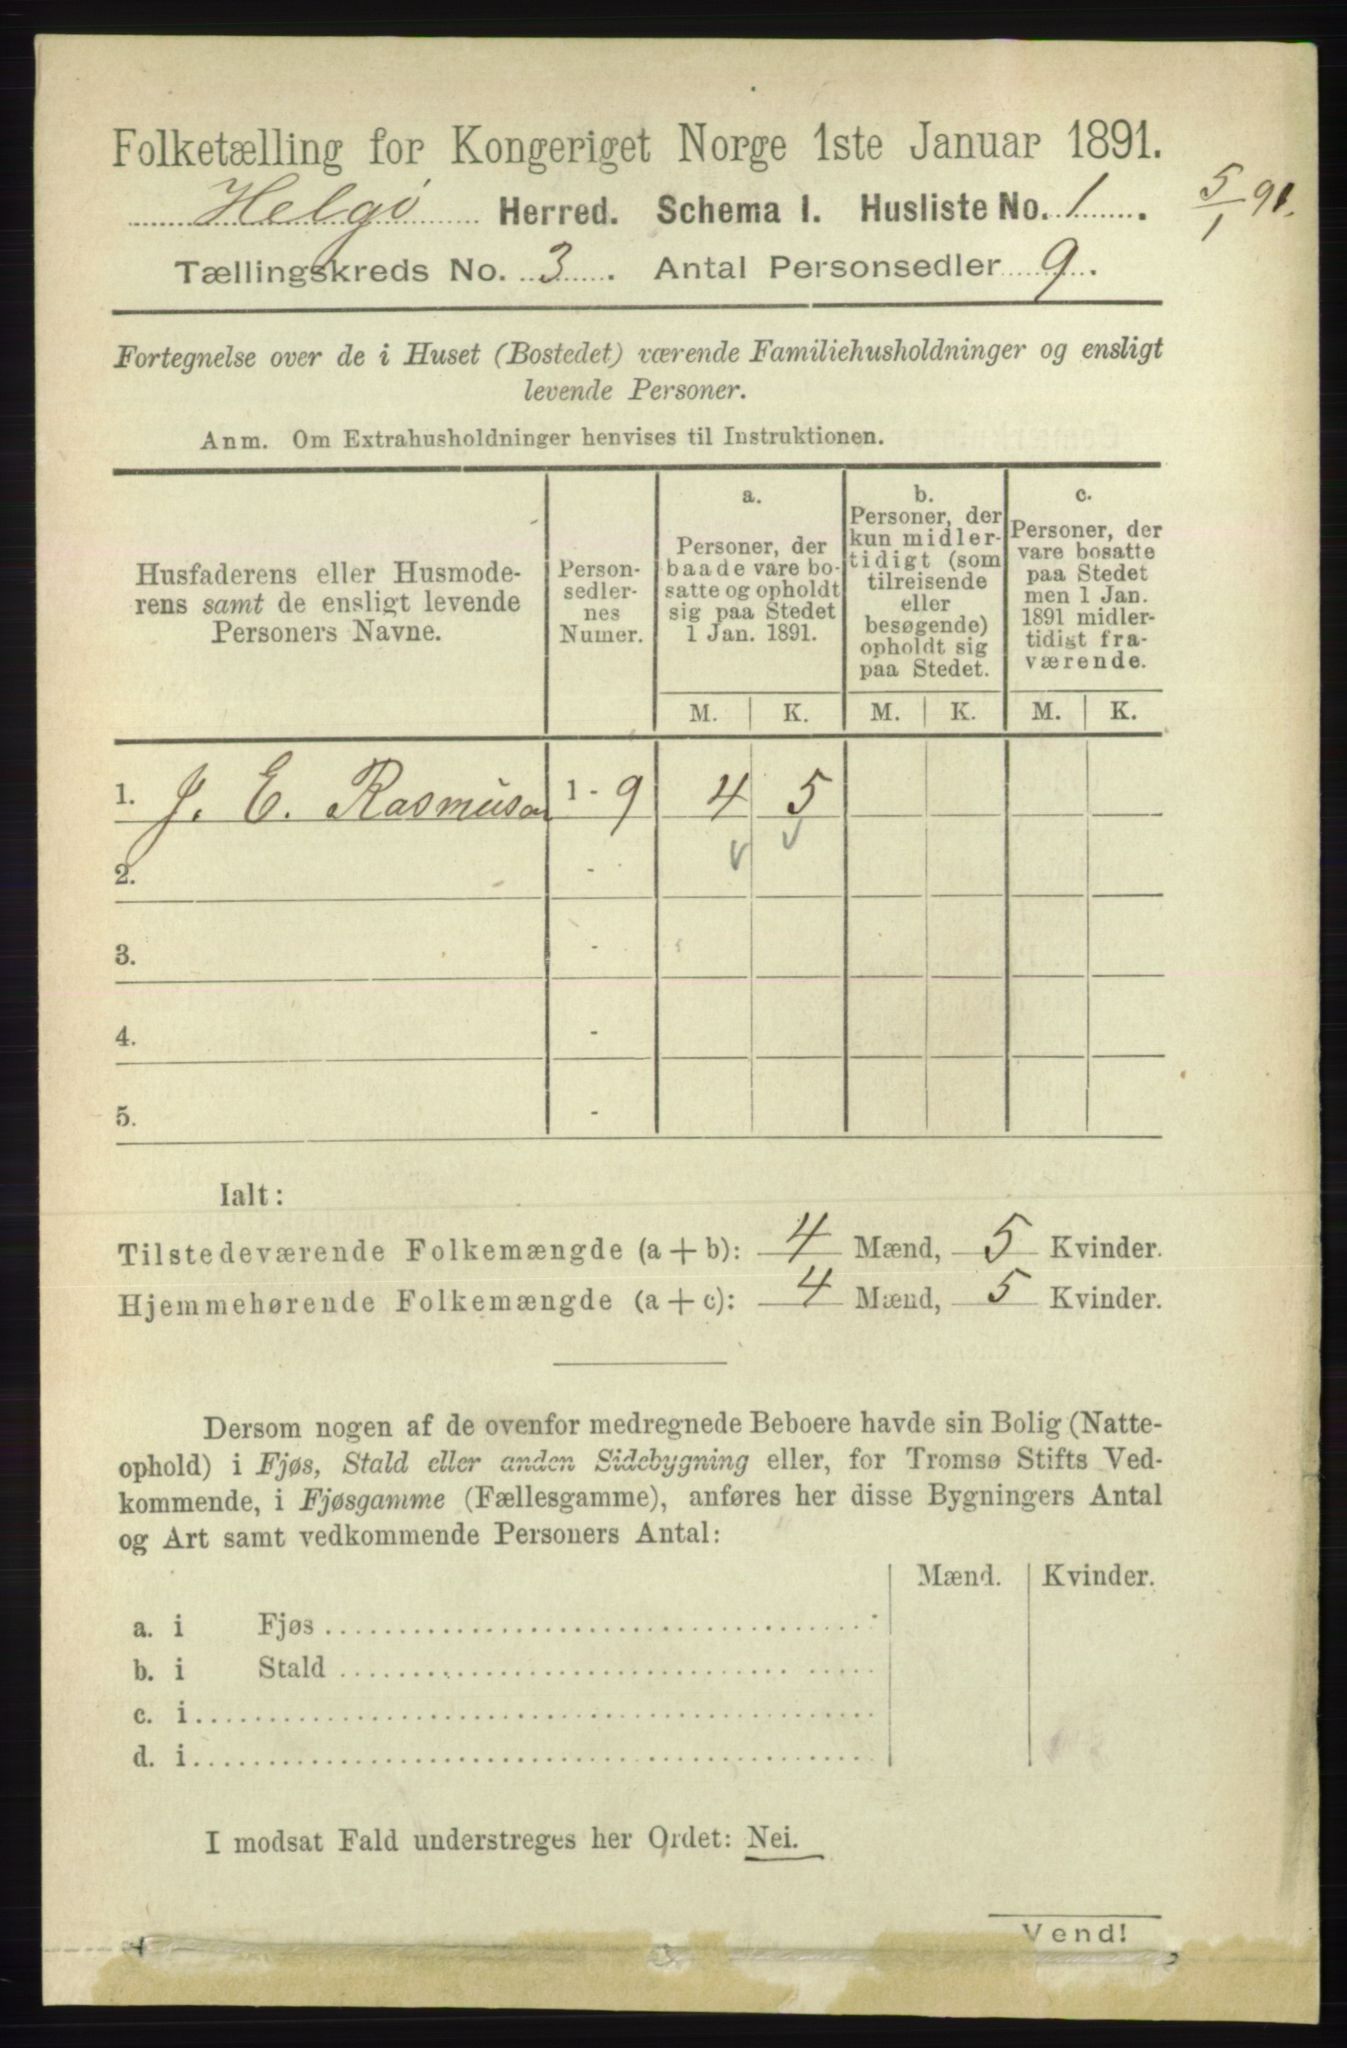 Folketælling for Kongeriget Norge 1ste Januar 1891.
Helgø Herred. Schema I. Husliste No. 1. 5/1 91.
Tællingskreds No. 3. Antal Personsedler 9.
Fortegnelse over de i Huset (Bostedet) værende Familiehusholdninger og ensligt
levende Personer.
Anm. Om Extrahusholdninger henvises til Instruktionen.
Husfaderens eller Husmode-
rens samt de ensligt levende
Personers Navne.
Person-
sedler-
nes
Numer.
a.
Personer, der
baade vare bo-
satte og opholdt
sig paa Stedet
1 Jan. 1891.
b.
Personer, der
kun midler-
tidigt (som
tilreisende
eller
besøgende)
opholdt sig
paa Stedet.
c.
Personer, der
vare bosatte
paa Stedet
men 1 Jan.
1891 midler-
tidigt fra-
værende.
M. K. M. K. M. K.
1. J. E. Rasmusen 1 - 9 4 5
2. -
3. -
4. -
5. -
Ialt:
Tilstedeværende Folkemængde (a + b): 4 Mænd, 5 Kvinder.
Hjemmehørende Folkemængde (a + c): 4 Mænd, 5 Kvinder.
Dersom nogen af de ovenfor medregnede Beboere havde sin Bolig (Natte-
ophold) i Fjøs, Stald eller anden Sidebygning eller, for Tromsø Stifts Ved-
kommende, i Fjøsgamme (Fællesgamme), anføres her disse Bygningers Antal
og Art samt vedkommende Personers Antal:
Mænd. Kvinder.
a. i Fjøs
b. i Stald
c. i
d. i
I modsat Fald understreges her Ordet: Nei.
Vend!